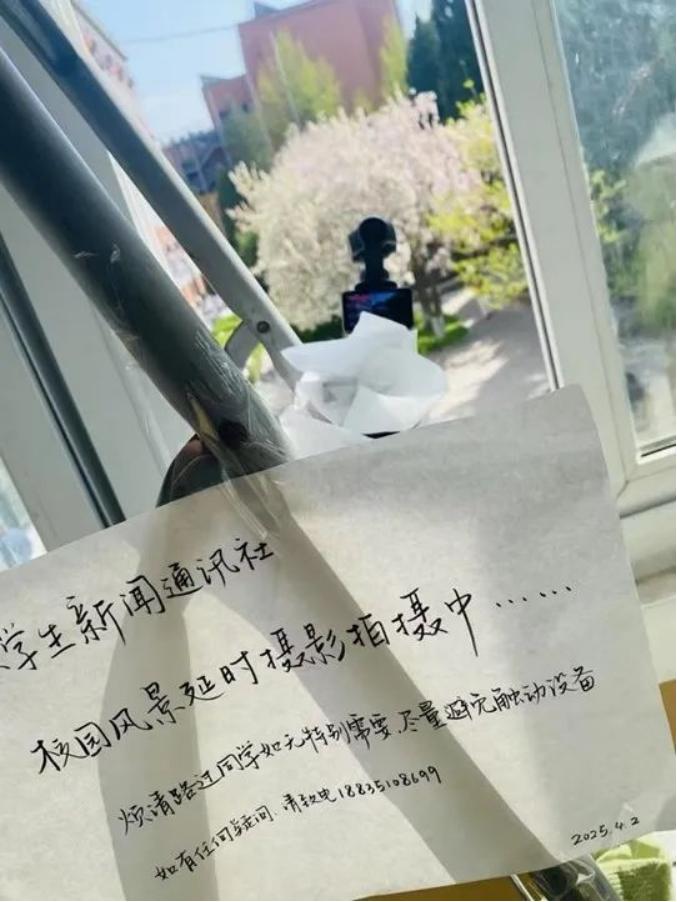 学生新闻通讯社
校园风景延时摄影拍摄中……
烦请路过同学如无特别需要,尽量避免触动设备
如有任何疑问,请致电18835108699
2025.4.2